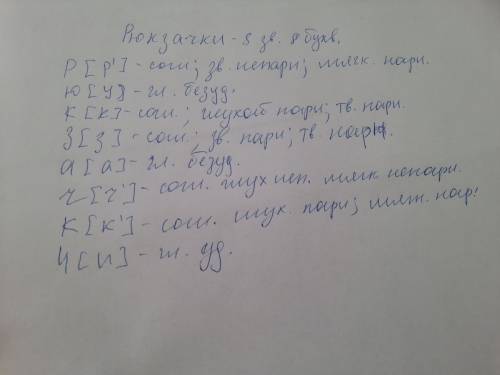 Рюкзачки - 8 зв. 8 букв.
Р [Р'] - согл; зв. непарн; мягк. парн.
Ю [У] - гл. безуд.
К [К] - согл.; глухой парн; тв. парн.
З [З] - согл; зв. парн; тв. парн.
а [а] - гл. безуд.
ч [ч'] - согл. глух неп. мягк. непарн.
К [К'] - согл. глух. парн; мягк. пар.
И [и] - гл. уд.